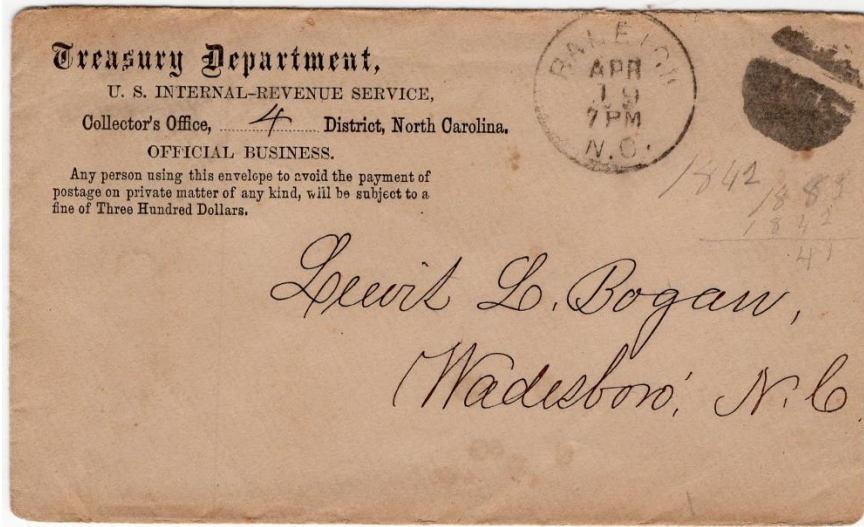 Treasury Department,
U. S. INTERNAL-REVENUE SERVICE,
Collector's Office, 4 District, North Carolina.
OFFICIAL BUSINESS.
Any person using this envelope to avoid the payment of
postage on private matter of any kind, will be subject to a
fine of Three Hundred Dollars.
RALEIGH
APR
19
7 PM
N.C.
1842
1883
1842
41
L. Bogan,
Wadesboro, N.C.